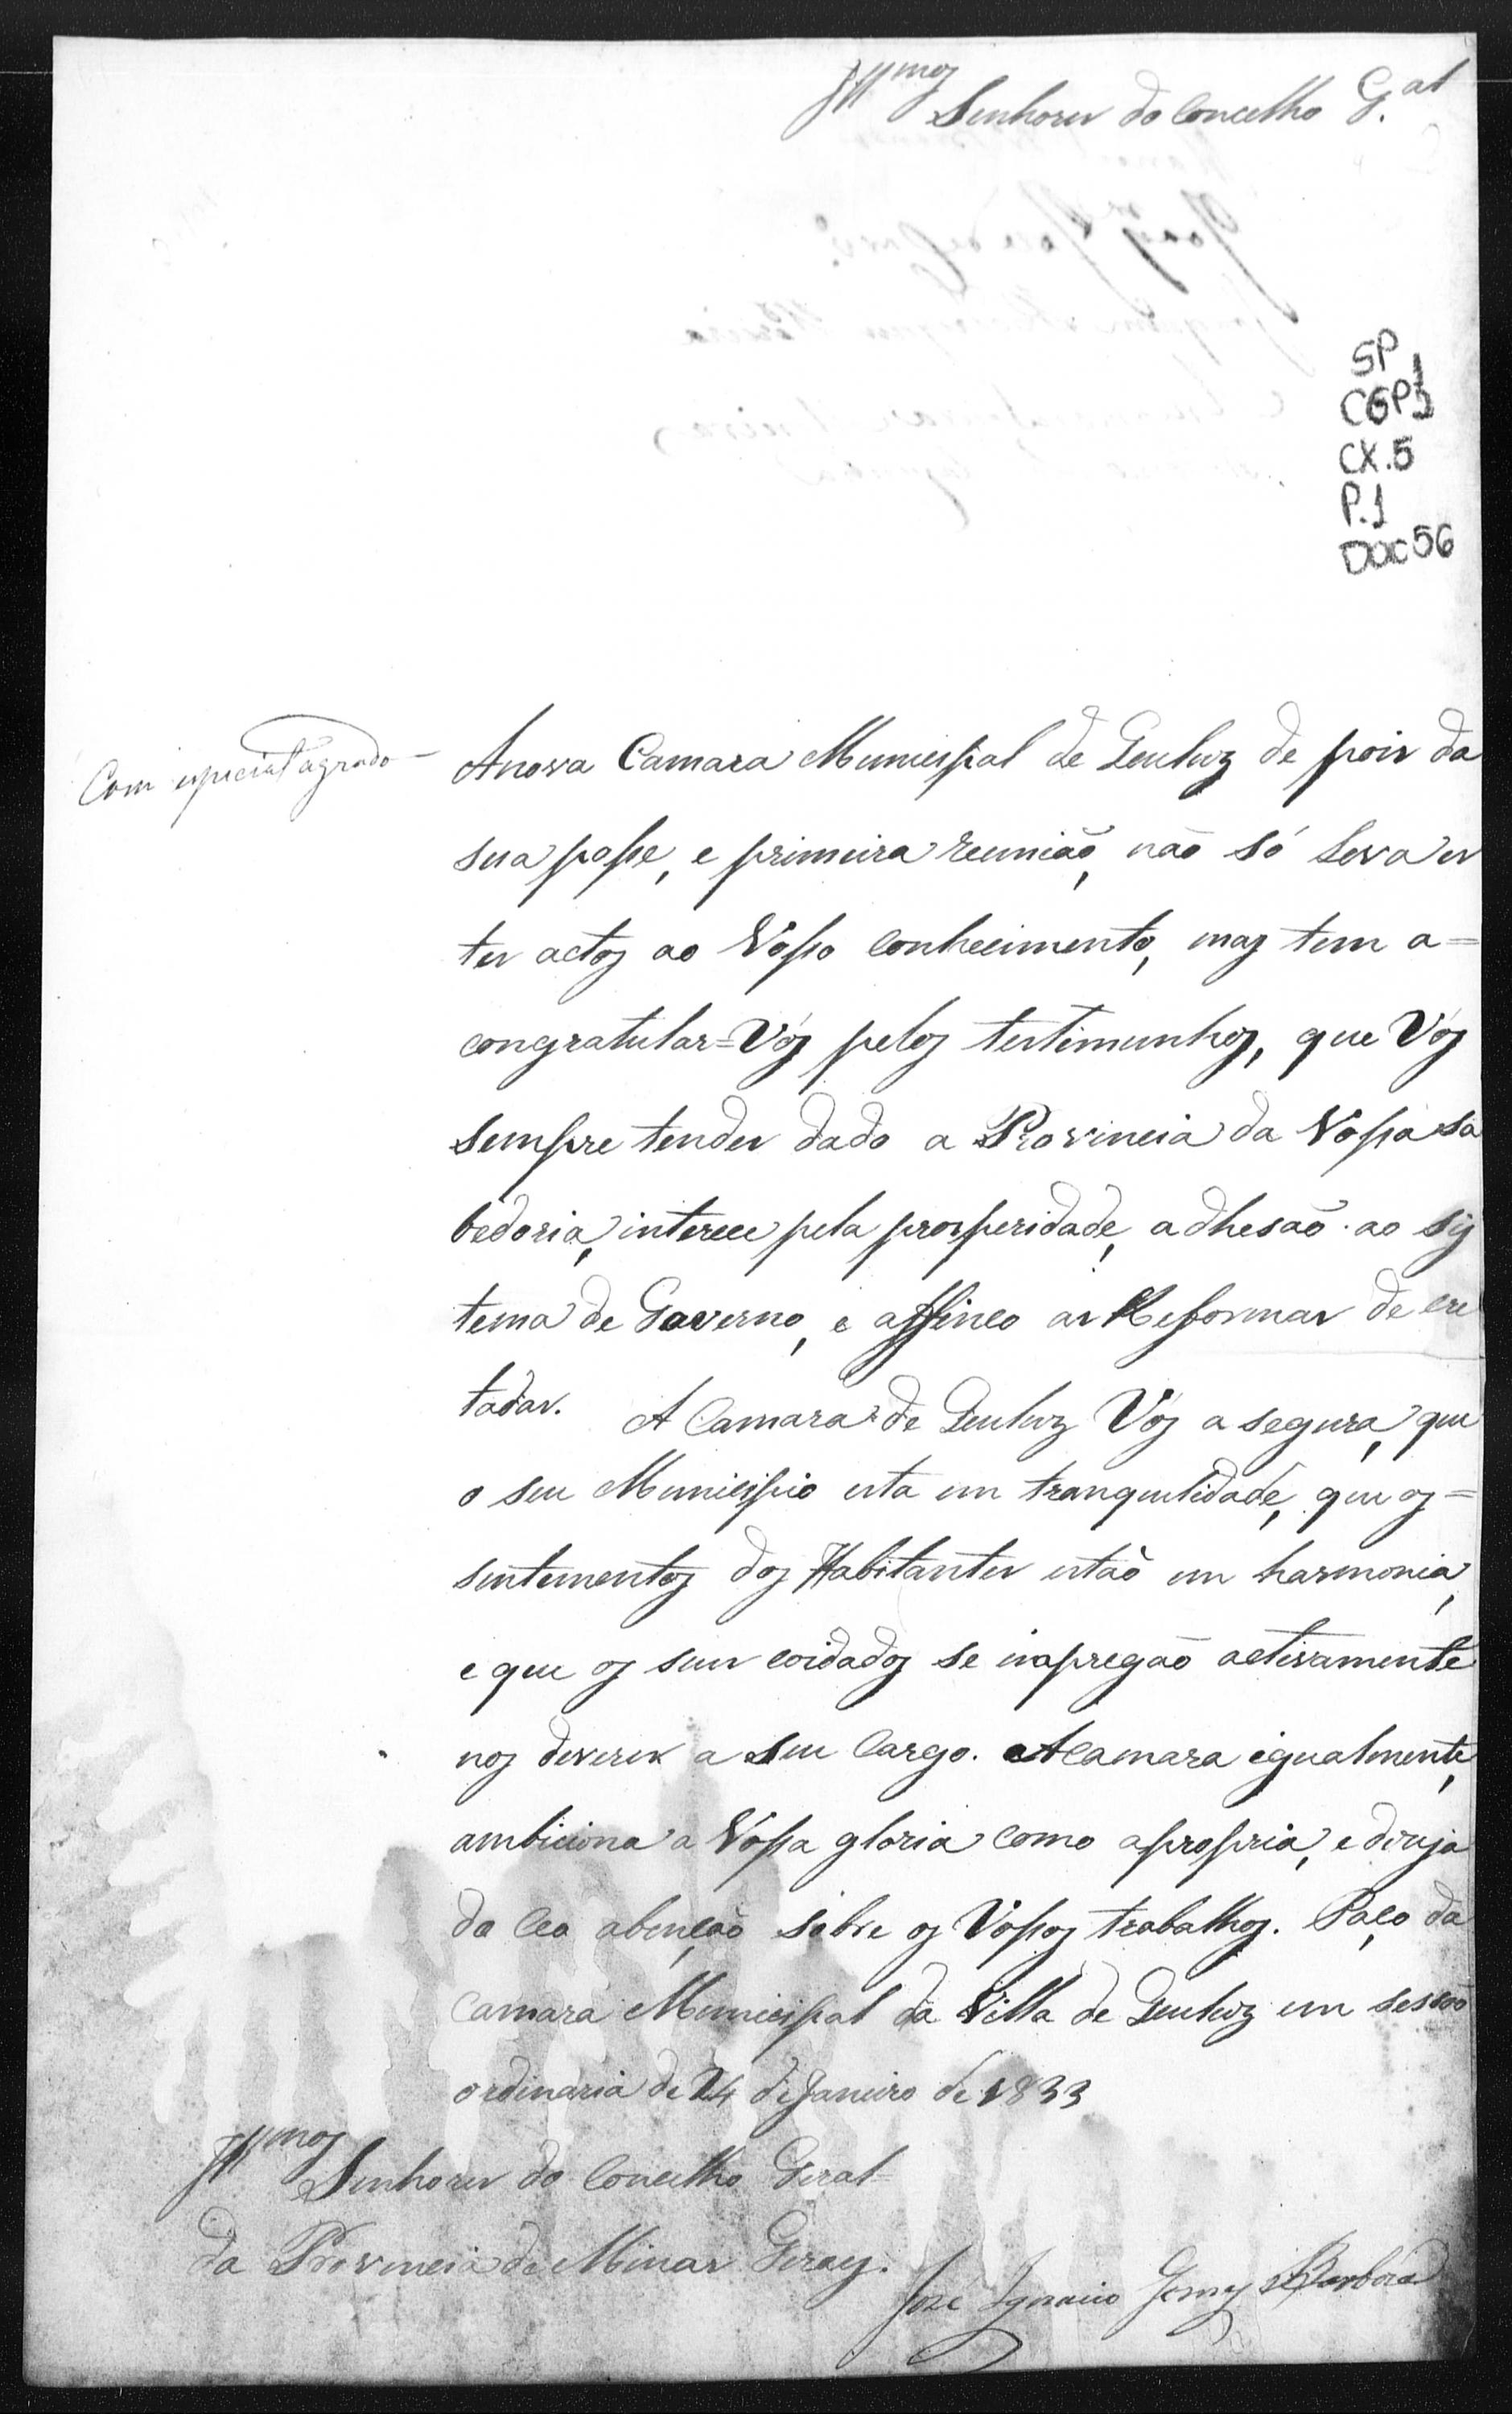 Illmos Senhores do Concelho G.al
SP
CGP1
CX.5
P.1
DOC 56
Com especial agrado
A nova Camara Municipal de Queluz de pois da
sua posse, e primeira reunião, não só leva es
tes actos ao Vosso conhecimento, mas tem a=
congratular=Vós pelos testimunhos, que Vós
sempre tendes dado a Provincia da Vossa sa
bedoria, interece pela prosperidade, adhesão ao sys
tema de Governo, e affinco as Reformas de cre
tadas. A Camara de Queluz Vós a segura, que
o seu Municipio esta em tranquilidade, que os=
sentementos dos Habitantes estão em harmonia,
e que os seus coidados se impregão activamente
nos deveres a seu cargo. A Camara igualmente,
ambiciona a Vossa gloria como a propria, e dezeja
do Ceo a benção sobre os Vossos trabalhos. Paço da
Camara Municipal da Villa de Queluz em sessão
ordinaria de 24 de Janeiro de 1833
Illmos Senhores do Concelho Geral
da Provincia de Minas Geraes.
José Ignacio Gomes Barboza